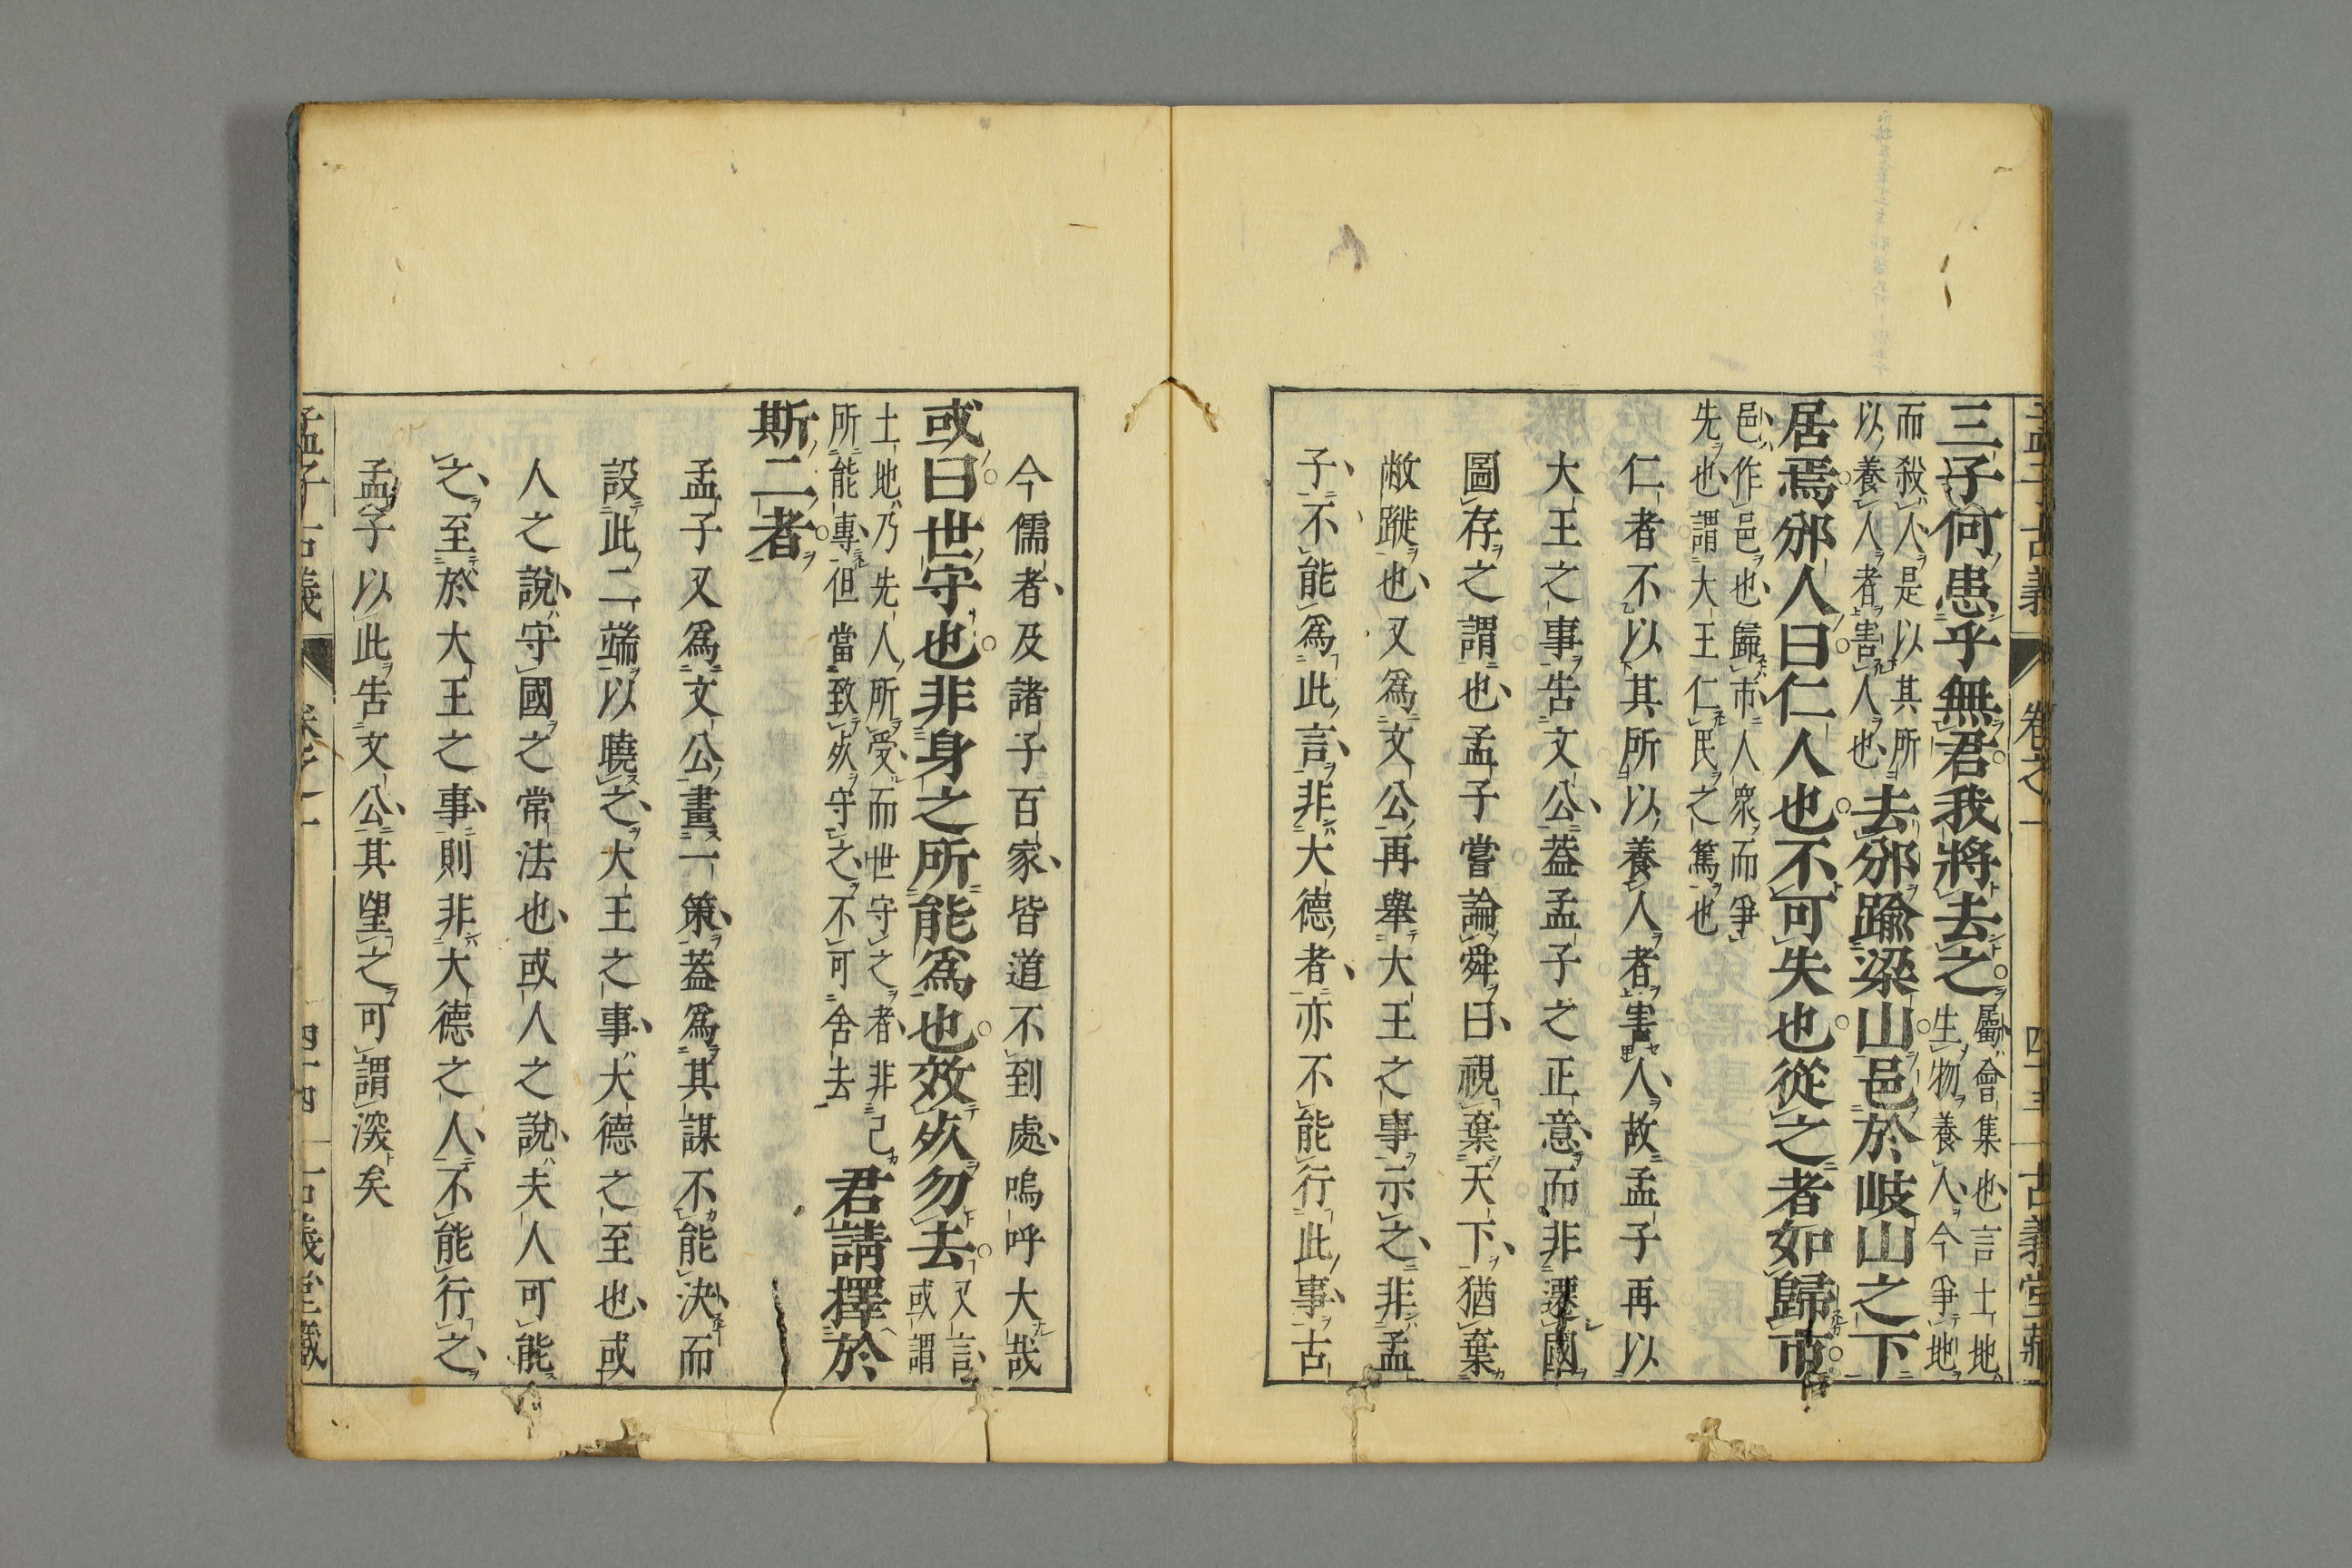 孟子古義 卷之一 四十三 古義堂藏
三子何患乎無君我將去之屬會集也言土地
生物養人今爭地
而殺人是以其所
以養人者害人也去邠踰梁山邑於岐山之下
居焉邠人曰仁人也不可失也從之者如歸市
邑作邑也歸市人衆而爭
先也謂大王仁民之篤也
仁者不以其所以養人者害人故孟子再以
大王之事告文公蓋孟子之正意而非遷國
圖存之謂也孟子嘗論舜曰視棄天下猶棄
敝蹝也又爲文公再舉大王之事示之非孟
子不能爲此言非大德者亦不能行此事古
今儒者及諸子百家皆道不到處嗚呼大哉
或曰世守也非身之所能爲也效死勿去又言
或謂
土地乃先人所受而世守之者非己
所能專但當致死守之不可舍去君請擇於
斯二者
孟子又爲文公畫一策蓋爲其謀不能決而
設此二端以曉之大王之事大德之至也或
人之說守國之常法也或人之說夫人可能
之至於大王之事則非大德之人不能行之
孟子以此告文公其望之可謂深矣
孟子古義 卷之一 四十四 古義堂藏